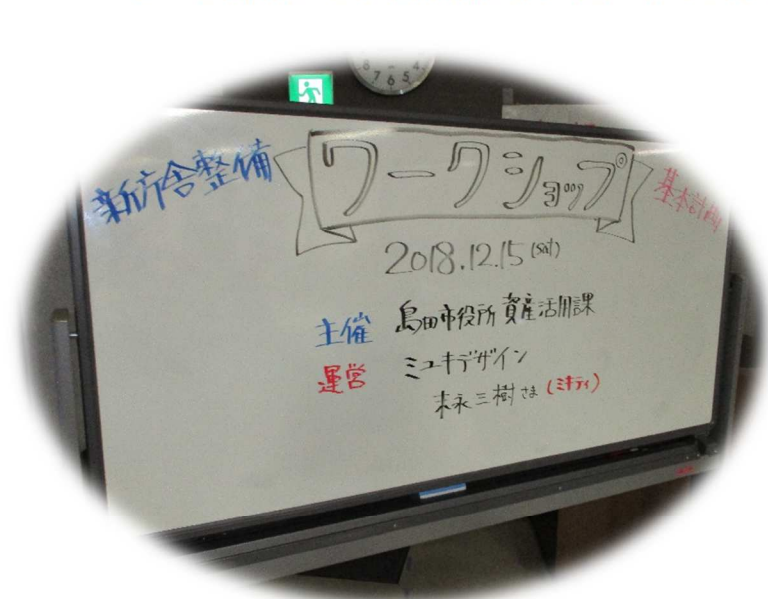 新庁舎整備 ワークショップ 基本計画
2018.12.15(sat)
主催 島田市役所 資産活用課
運営 ミユキデザイン
末永三樹さま(ミキティ)
8 7 6 5 4